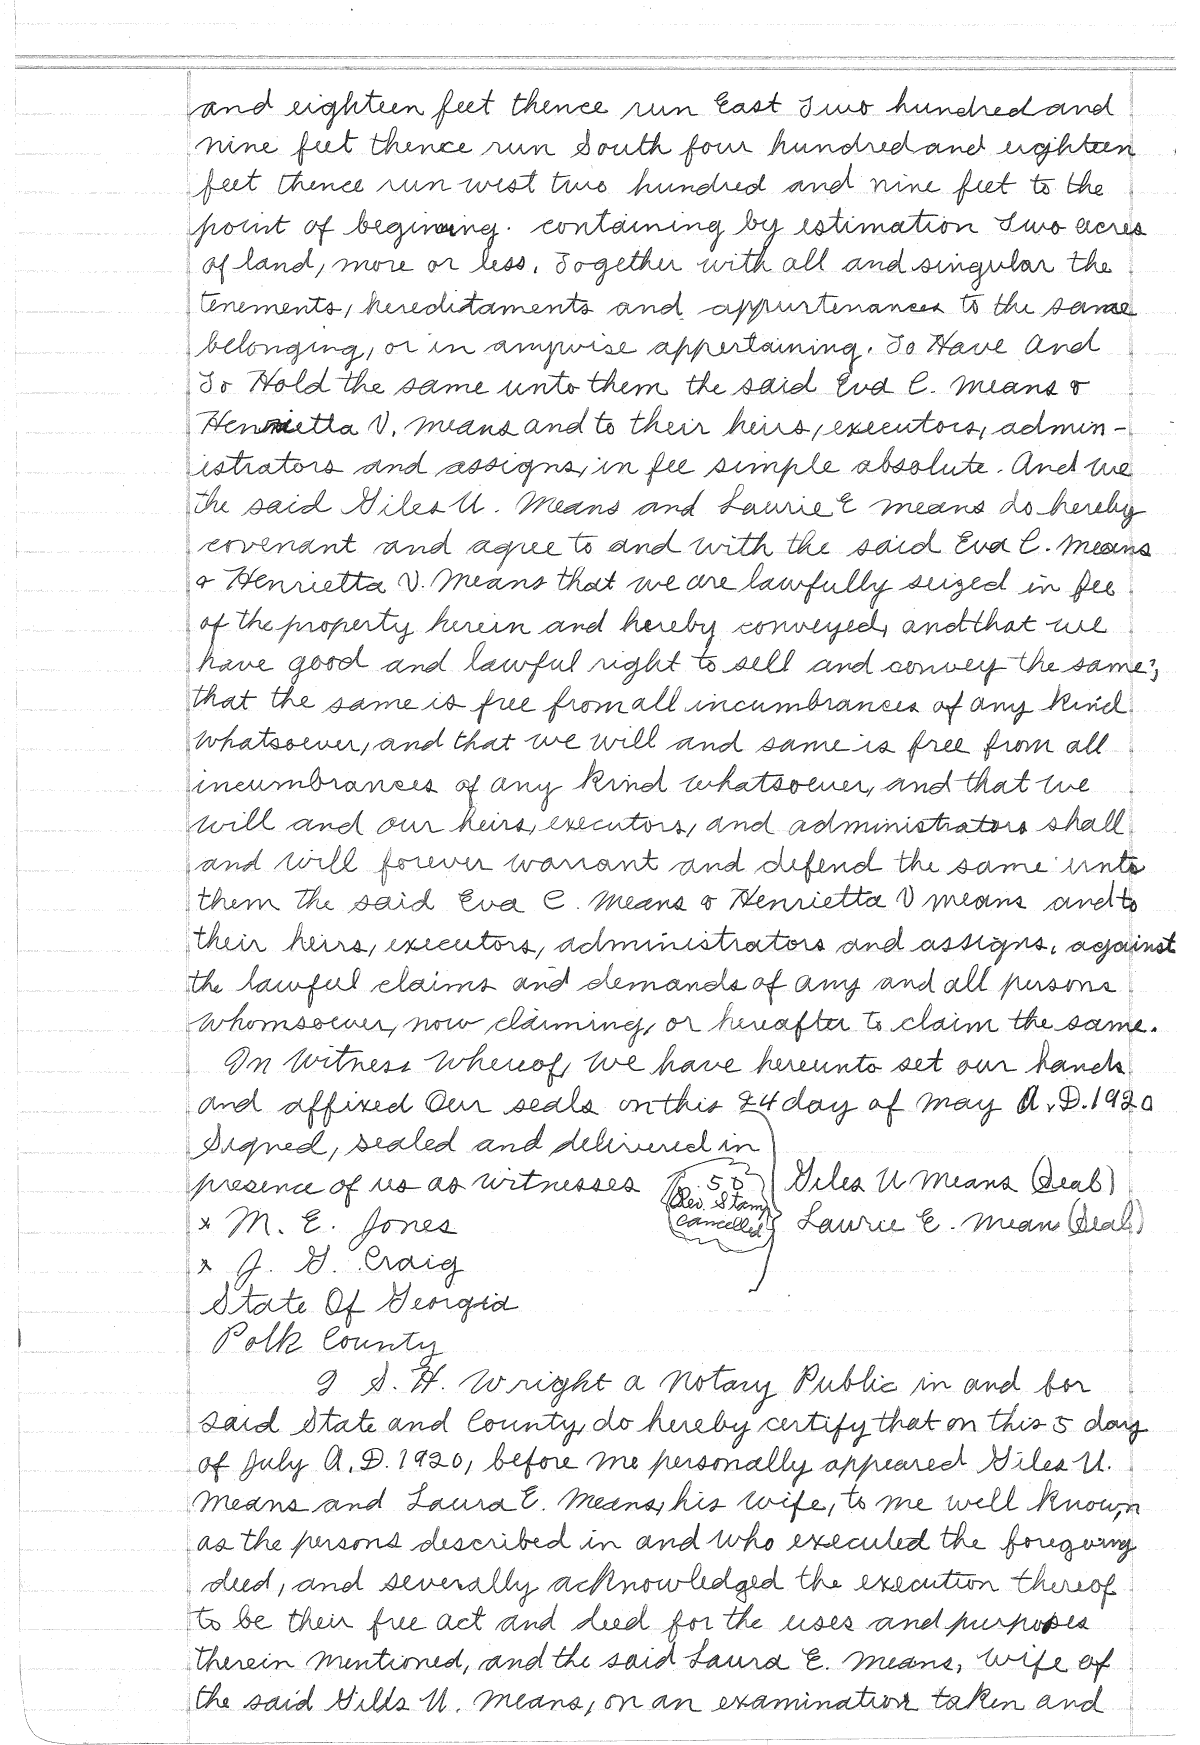 and eighteen feet thence run East Two hundred and
nine feet thence run South four hundred and eighteen
feet thence run west two hundred and nine feet to the
point of beginning. containing by estimation Two acres
of land, more or less, Together with all and singular the
tenements, hereditaments and appurtenances to the same
belonging, or in anywise appertaining. To Have And
To Hold the same unto them the said Eva C. Means &
Henrietta V. Means and to their heirs, executors, admin-
istrators and assigns, in fee simple absolute. And we
the said Giles U. Means and Laurie E Means do hereby
covenant and agree to and with the said Eva C. Means
& Henrietta V. Means that we are lawfully seized in fee
of the property herein and hereby conveyed, and that we
have good and lawful right to sell and convey the same;
that the same is free from all incumbrances of any kind
whatsoever, and that we will and same is free from all
incumbrances of any kind whatsoever, and that we
will and our heirs, executors, and administrators shall
and will forever warrant and defend the same unto
them the said Eva C. Means & Henrietta V Means and to
their heirs, executors, administrators and assigns, against
the lawful claims and demands of any and all persons
whomsoever, now claiming, or hereafter to claim the same.
In Witness Whereof, We have hereunto set our hands
and affixed Our seals on this 24 day of May A.D. 1920
Signed, sealed and delivered in
presence of us as witnesses 50 Giles U Means (Seal)
Rev. Stamp
x M. E. Jones cancelled Laurie E. Mean (Seal)
x J. G. Craig
State Of Georgia
Polk County
I S. H. Wright a Notary Public in and for
said State and County, do hereby certify that on this 5 day
of July A.D. 1920, before me personally appeared Giles U.
Means and Laura E. Means, his wife, to me well known
as the persons described in and who executed the foregoing
deed, and severally acknowledged the execution thereof
to be their free act and deed for the uses and purposes
therein mentioned, and the said Laura E. Means, wife of
the said Gills U. Means, on an examination taken and